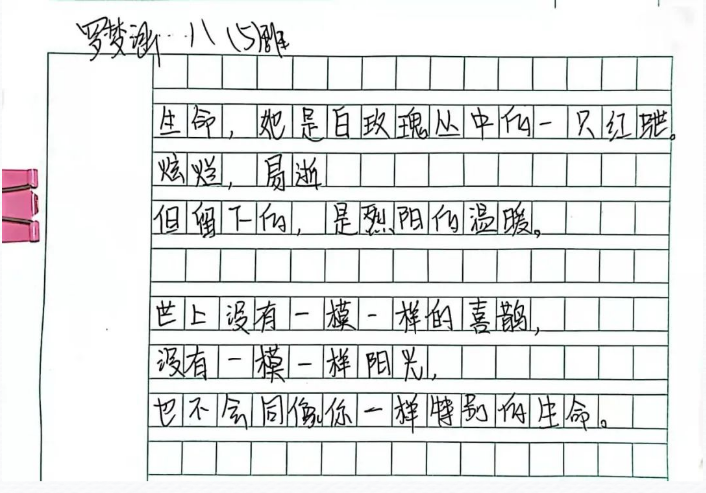 罗梦 八(5)班
生命，她是白玫瑰丛中的一只红
炫烂，易逝
但留下的，是烈阳的温暖。
世上没有一模一样的喜鹊，
没有一模一样阳光，
也不会同像你一样特别的生命。